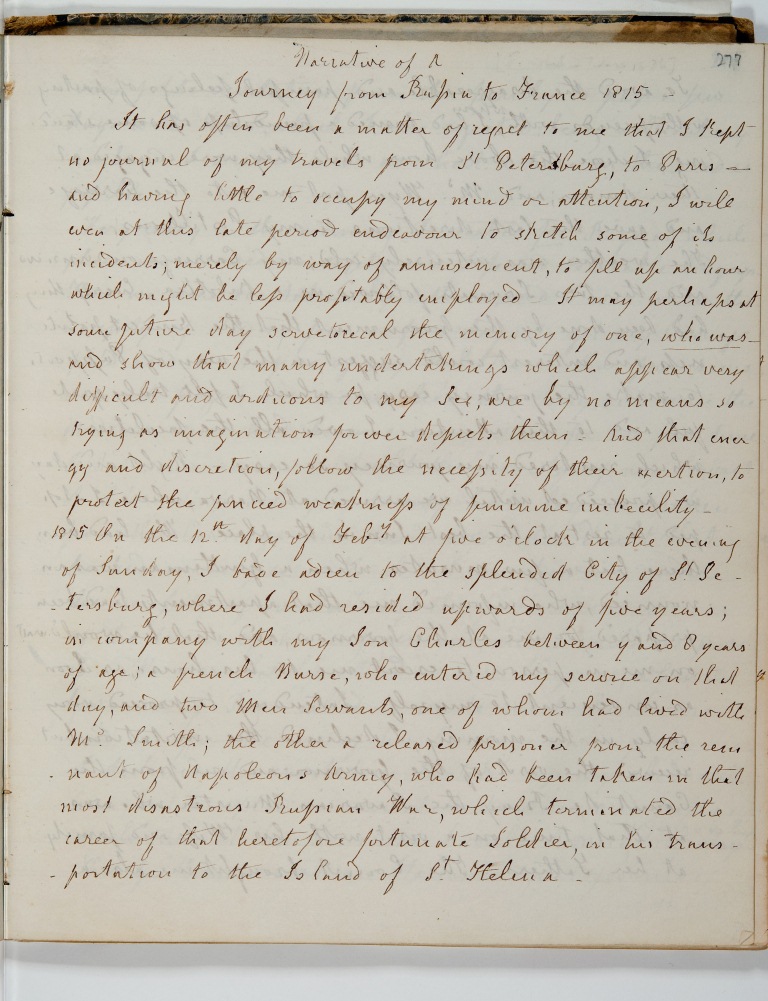 277
Narrative of a
Journey from Russia to France 1815 -
It has often been a matter of regret to me that I kept
no journal of my travels from St Petersburg, to Paris —
and having little to occupy my mind or attention, I will
even at this late period endeavour to sketch some of its
incidents; merely by way of amusement, to fill up an hour
which might be less profitably employed It may perhaps at
some future day serve to recal the memory of one, who was—
and show that many undertakings which appear very
difficult and arduous to my Sex, are by no means so
trying as imagination forever depicts them - And that ener
gy and discretion, follow the necessity of their exertion, to
protect the fancied weakness of feminine imbecility -
1815 On the 12th day of Feby at five o'clock in the evening
of Sunday, I bade adieu to the splendid City of St Pe -
- tersburg, where I had resided upwards of five years;
in company with my Son Charles between 7 and 8 years
of age; a french Nurse, who entered my service on that
day, and two Men Servants, one of whom had lived with
Mr. Smith; the other a released prisoner from the rem
- nant of Napoleons Army, who had been taken in that
most disastrous Russian War, which terminated the
career of that heretofore fortunate Soldier, in his trans -
- portation to the Island of St. Helena -